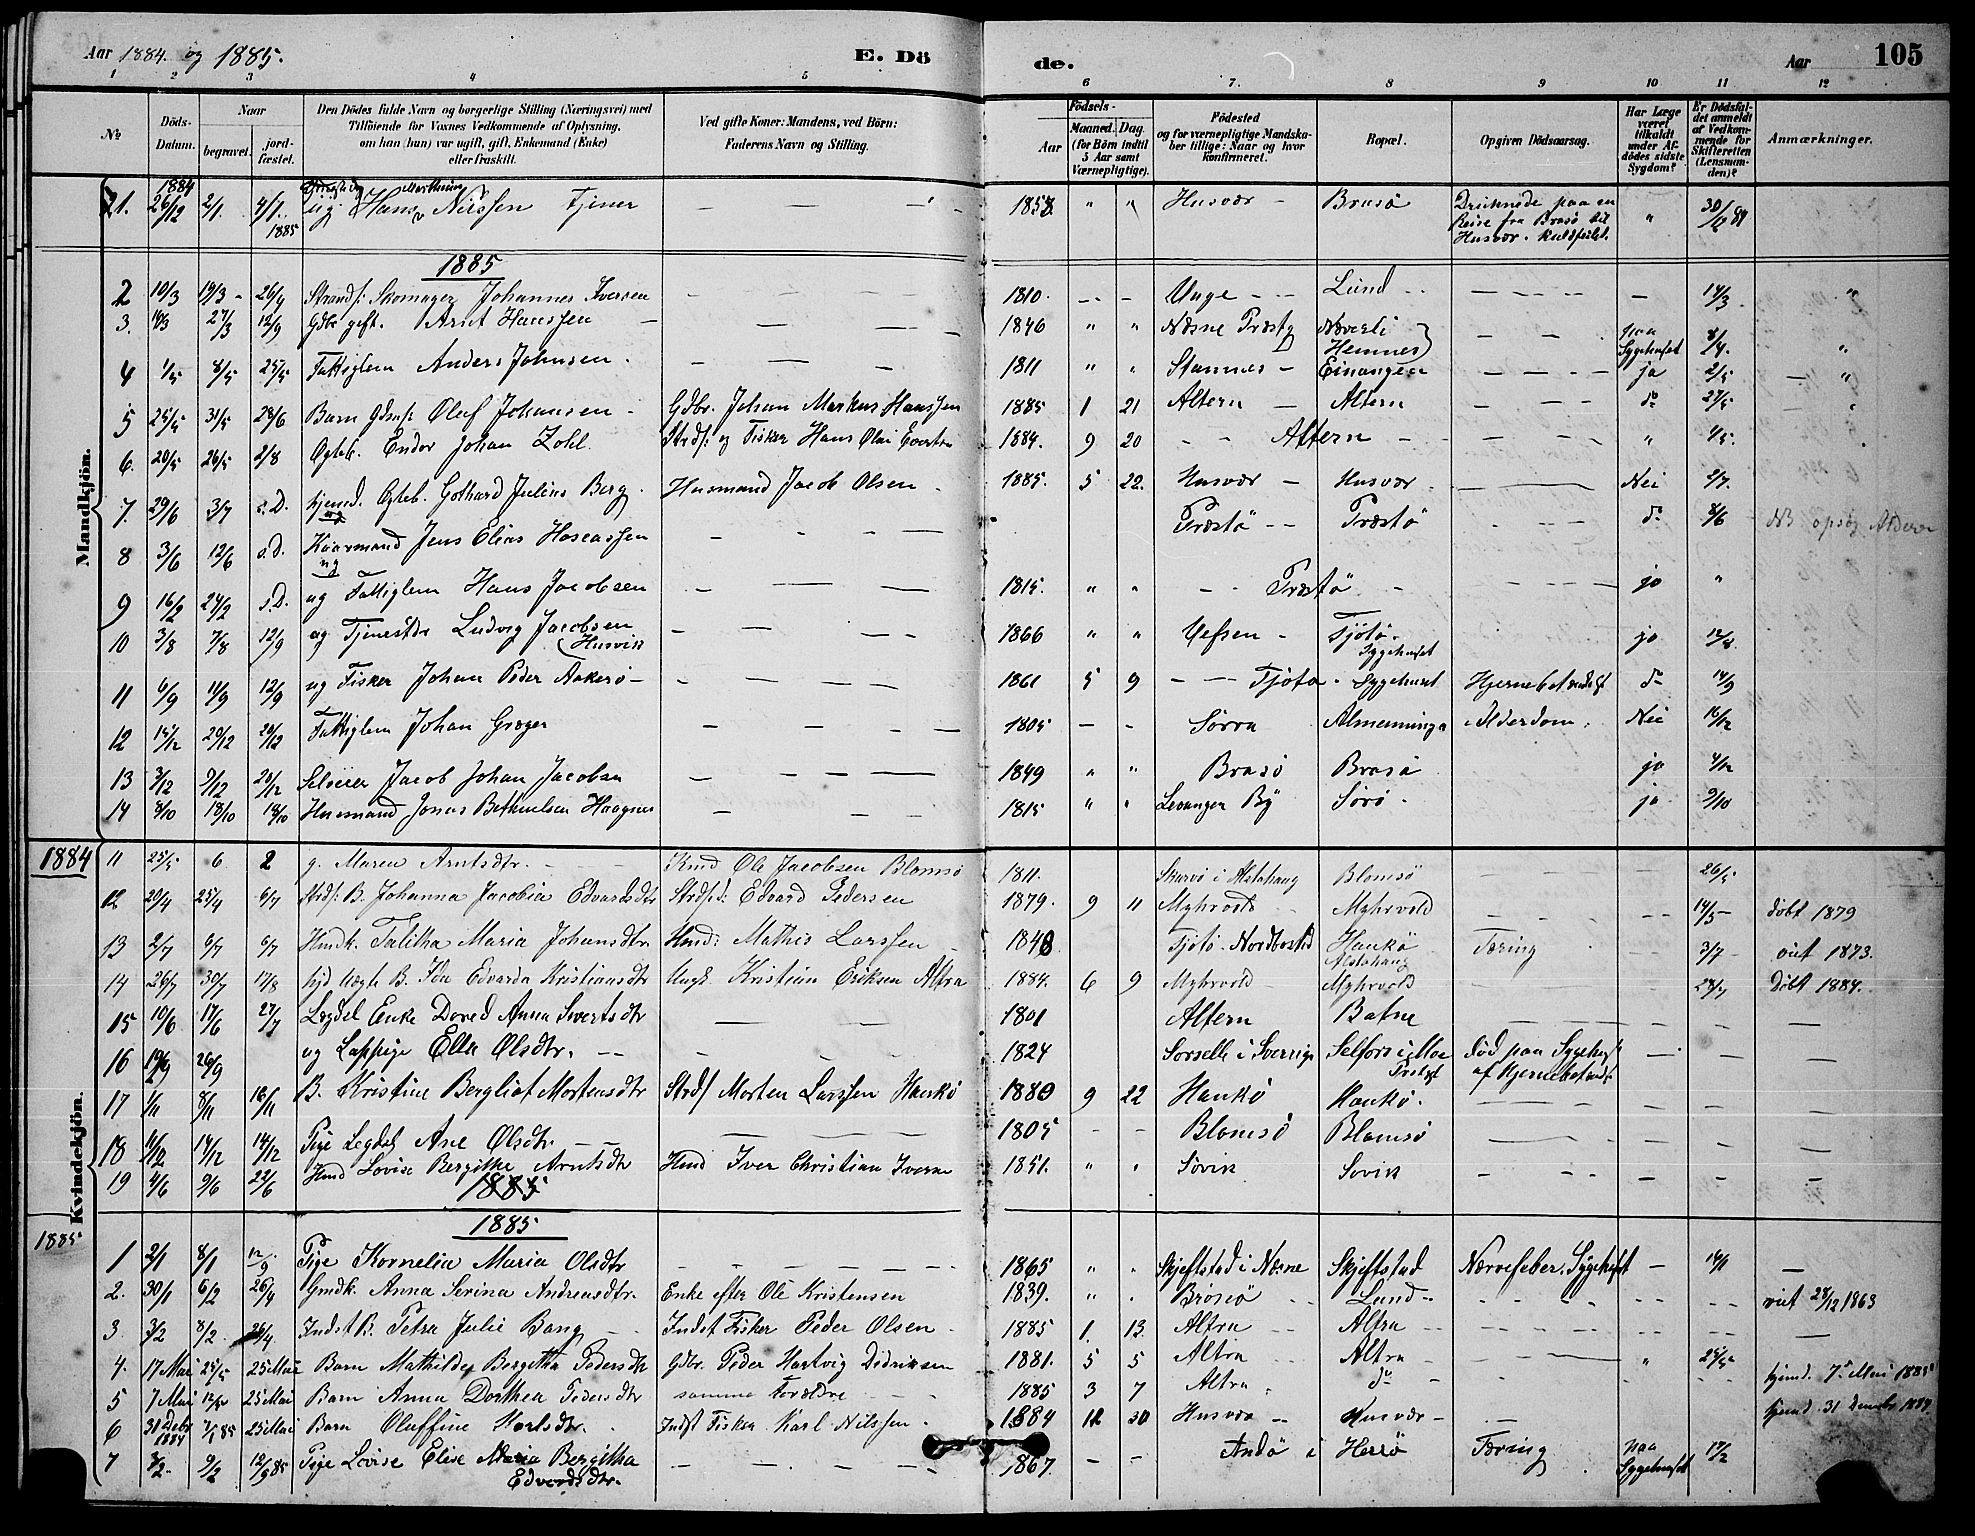 Aar 1884. og 1885. E. Dö de. Aar 105
1 2 3 4 5 6 7. 8 9 10 11 12
No Döds-Datum. Naar begravet. jord-fæstet. Den Dödes fulde Navn og borgerlige Stilling (Næringsvei) med Tilföiende for Voxnes Vedkommende af Oplysning, om han (hun) var ugift, gift, Enkemand (Enke) eller fraskilt. Ved gifte Koner: Mandens, ved Börn: Faderens Navn og Stilling. Aar Födsels- Maaned. Dag. (for Börn indtil 5 Aar samt Værnepligtige). Födested og for værnepligtige Mandskaber tillige: Naar og hvor konfirmeret. Bopæl. Opgiven Dödsaarsag. Har Læge været tilkaldt under Afdödes sidste Sygdom? Er Dödsfaldet anmeldt af Vedkommende for Skifteretten (Lensmanden)? Anmærkninger.
Mandkjön.
1884
1. 26/12 2/1. 4/1. 1885 ug Hans Nilssen Tjener — — 1858 " " Husvær – Brasö Druknede paa en Reise fra Brasö til Husvær. Kuldseilet. " 30/12 84
1885
2 10/3 19/3 - 26/4 Strands: Skomager Johannes Iversen — — — 1810. -- - Unge -- Lund -- — 14/3 "
3. 14/3 27/3 12/9 Gdbr gift. Arnt Hanssen — — — 1846 " " Næsne Præstg Næverli Hemnes paa Sygehuset 8/4. "
4 1/5 8/5 25/5 Fattiglem Anders Johnsen. — — 1811 " " Stamnes – Einangen ja 2/5 "
5 25/5 31/5 28/6 Barn Oluf Johansen - Gdbr. Johan Markus Hanssen 1885 1 21 Altern — Altern do 27/5 "
6. 20/5 26/5 2/8 Ogteb. Endor Johan Zohl. Strds: og Fisker Hans Olai 1884. 9 20 -- Altern — " 1/5.
7. 29/6 3/7 s.D. hjemd. Ogteb. Gothard Julius Berg. Husmand Jacob Olsen. 1885. 5 22. Husvær – Husvær Nei 2/7.
8 3/6 12/6 s.D. ug Kaarmand Jens Elias Hoseassen - — — Præstö -- Præstö do 8/6 NB opsøg Alderen
9 16/2 24/2 s.D. ug Fattiglem Hans Jacobsen — — — 1815. " " -- Præstö - ja "
10 3/8 7/8 12/9 ug Ludvig Jacobsen (Husvik — — — 1866 " " Vefsen - Tjötö. Sygehuset ja 12/8
11 6/9 11/9 12/9 ug Fisker Johan Peder Aakerö — — — 1861 5 9 -- Tjötö. Sygehuset do 14/9
12 15/12 20/12 20/12 Fattiglem Johan Græger — — — 1805 - - Sörra Almenninga Alderdom. Nei 16/12
13 3/12 9/12 20/12 Selveier Jacob Johan Jacobsen — — — 1849 " " Brasö Brasö ja 4/12
14 8/10 18/10 18/10 Husmand Jonas Bethuelsen — — 1815 " " Levanger By Sörö. ja 9/10
1884 11 25/5 6 2 g. Maren Arntsdtr. Kmd Ole Jacobsen Blomsö 1811. Skarvö i Alstahaug Blomsö 26/5
Kvindekjön.
12 20/4 25/4 6/7 Strds: B. Johanna Jacobia Edvardsdtr Strds: Edvard Pedersen 1879. 9 11 Myhrvold Myhrvold 14/5 - döbt 1879
13 2/7 6/7 6/7 Hmdk. Talitha Maria Johansdtr Hmd: Mathis Larssen 1848 Tjötö. Nordbostad Haukö Alstahaug Tæring 3/7 viet 1873.
14 26/7 30/7 17/8 hjd Uægte B. Ida Edvarda Kristiansdtr Ungk. Kristian Eriksen Altra 1884. 6 9 Myhrvold Myhrvold 28/7 Döbt 1884.
15 10/6 17/6 27/7 Lægdel Enke Dored Anna Sivertsdtr — — 1801 Altern Batne
16 19/9 26/9 ug Lappige Ella Olsdtr. -- 1824 Sorselle i Sverrige Selfors i Moe Præstgt död paa Sygehuset
17 1/11 8/11 16/11 B. Kristine Bergliot Mortensdtr Strds Morten Larssen Haukö 1880 9 22 Haukö Haukö.
18 11/12 14/12 14/12 Pige Legdel Ane Olsdtr — 1805 - - Blomsö Blomsö
19 4/6 9/6 22/6 Hmd Lovise Bergithe Arntsdtr Hmd Iver Christian Iversen 1851. " " Sövik Sovik
1885
1885 1885
1 2/1 8/1 12/9 Pige Kornelia Maria Olsdtr — — 1865 " " Skjeftstad i Næsne Skjeftstad Nervefeber. Sygehuset — 14/1
2. 30/1 6/2 26/4 Gmdk. Anna Serina Andreasdtr. Enke efter Ole Kristensen 1839. " " Brösiö Lund -- viet 28/12 1863
3 3/2 8/2. 26/4 Indst B. Petra Julie Bang Indst Fisker Peder Olsen 1885 1. 13. Altra -- Altra --
4. 17 Mai 25/5 25 Mai Barn Mathilde Bergitha Pedersdtr Gdbr. Peder Hartvig Didriksen 1881. 5 5 Altra Altra " 25/5
5 7 Mai 12/5 25 Mai Barn Anna Dorthea Pedersdtr samme Forældre 1885 3 7 Altra do hjemd. 7de Mai 1885
6 31 Decbr 1884 7/1 85 25 Mai Barn Oluffine Karlsdtr. Indst Fisker Karl Nilssen. 1884 12 20 Husvær Husvær - hjemd 31 Decmbr 1884
7 3/2. 9/2 12/9 85 Pige Lovise Elise Maria Bergitha Edvardsdtr. — — 1867. - - Andö i Herrö Tæring paa Sygehuset 17/2